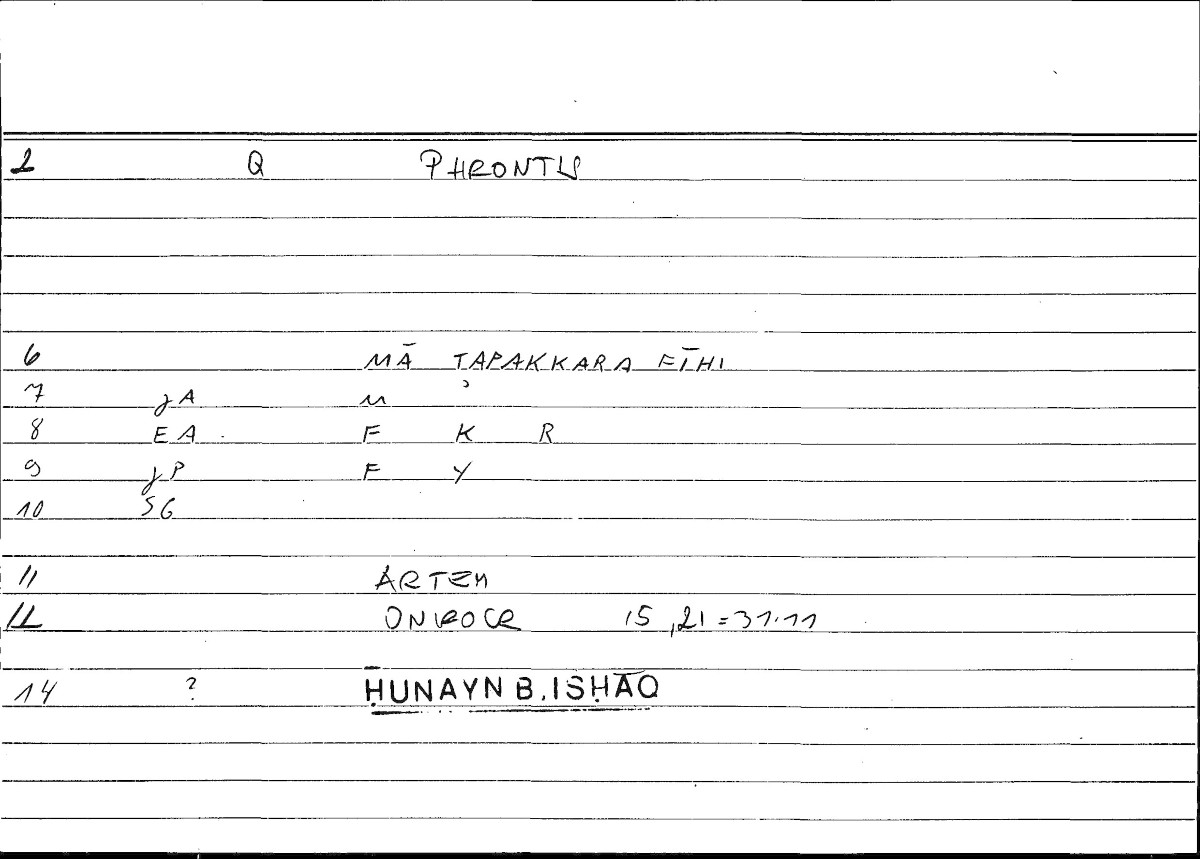 2 Q PHRONTIS
6 MĀ TAPAKKARA FĪHI
7 jA M
8 EA F K R
9 jP F Y
10 SG
11 ARTEM
12 ONIROCR 15,21=31.11
14 ? ḤUNAYN B.ISḤĀQ